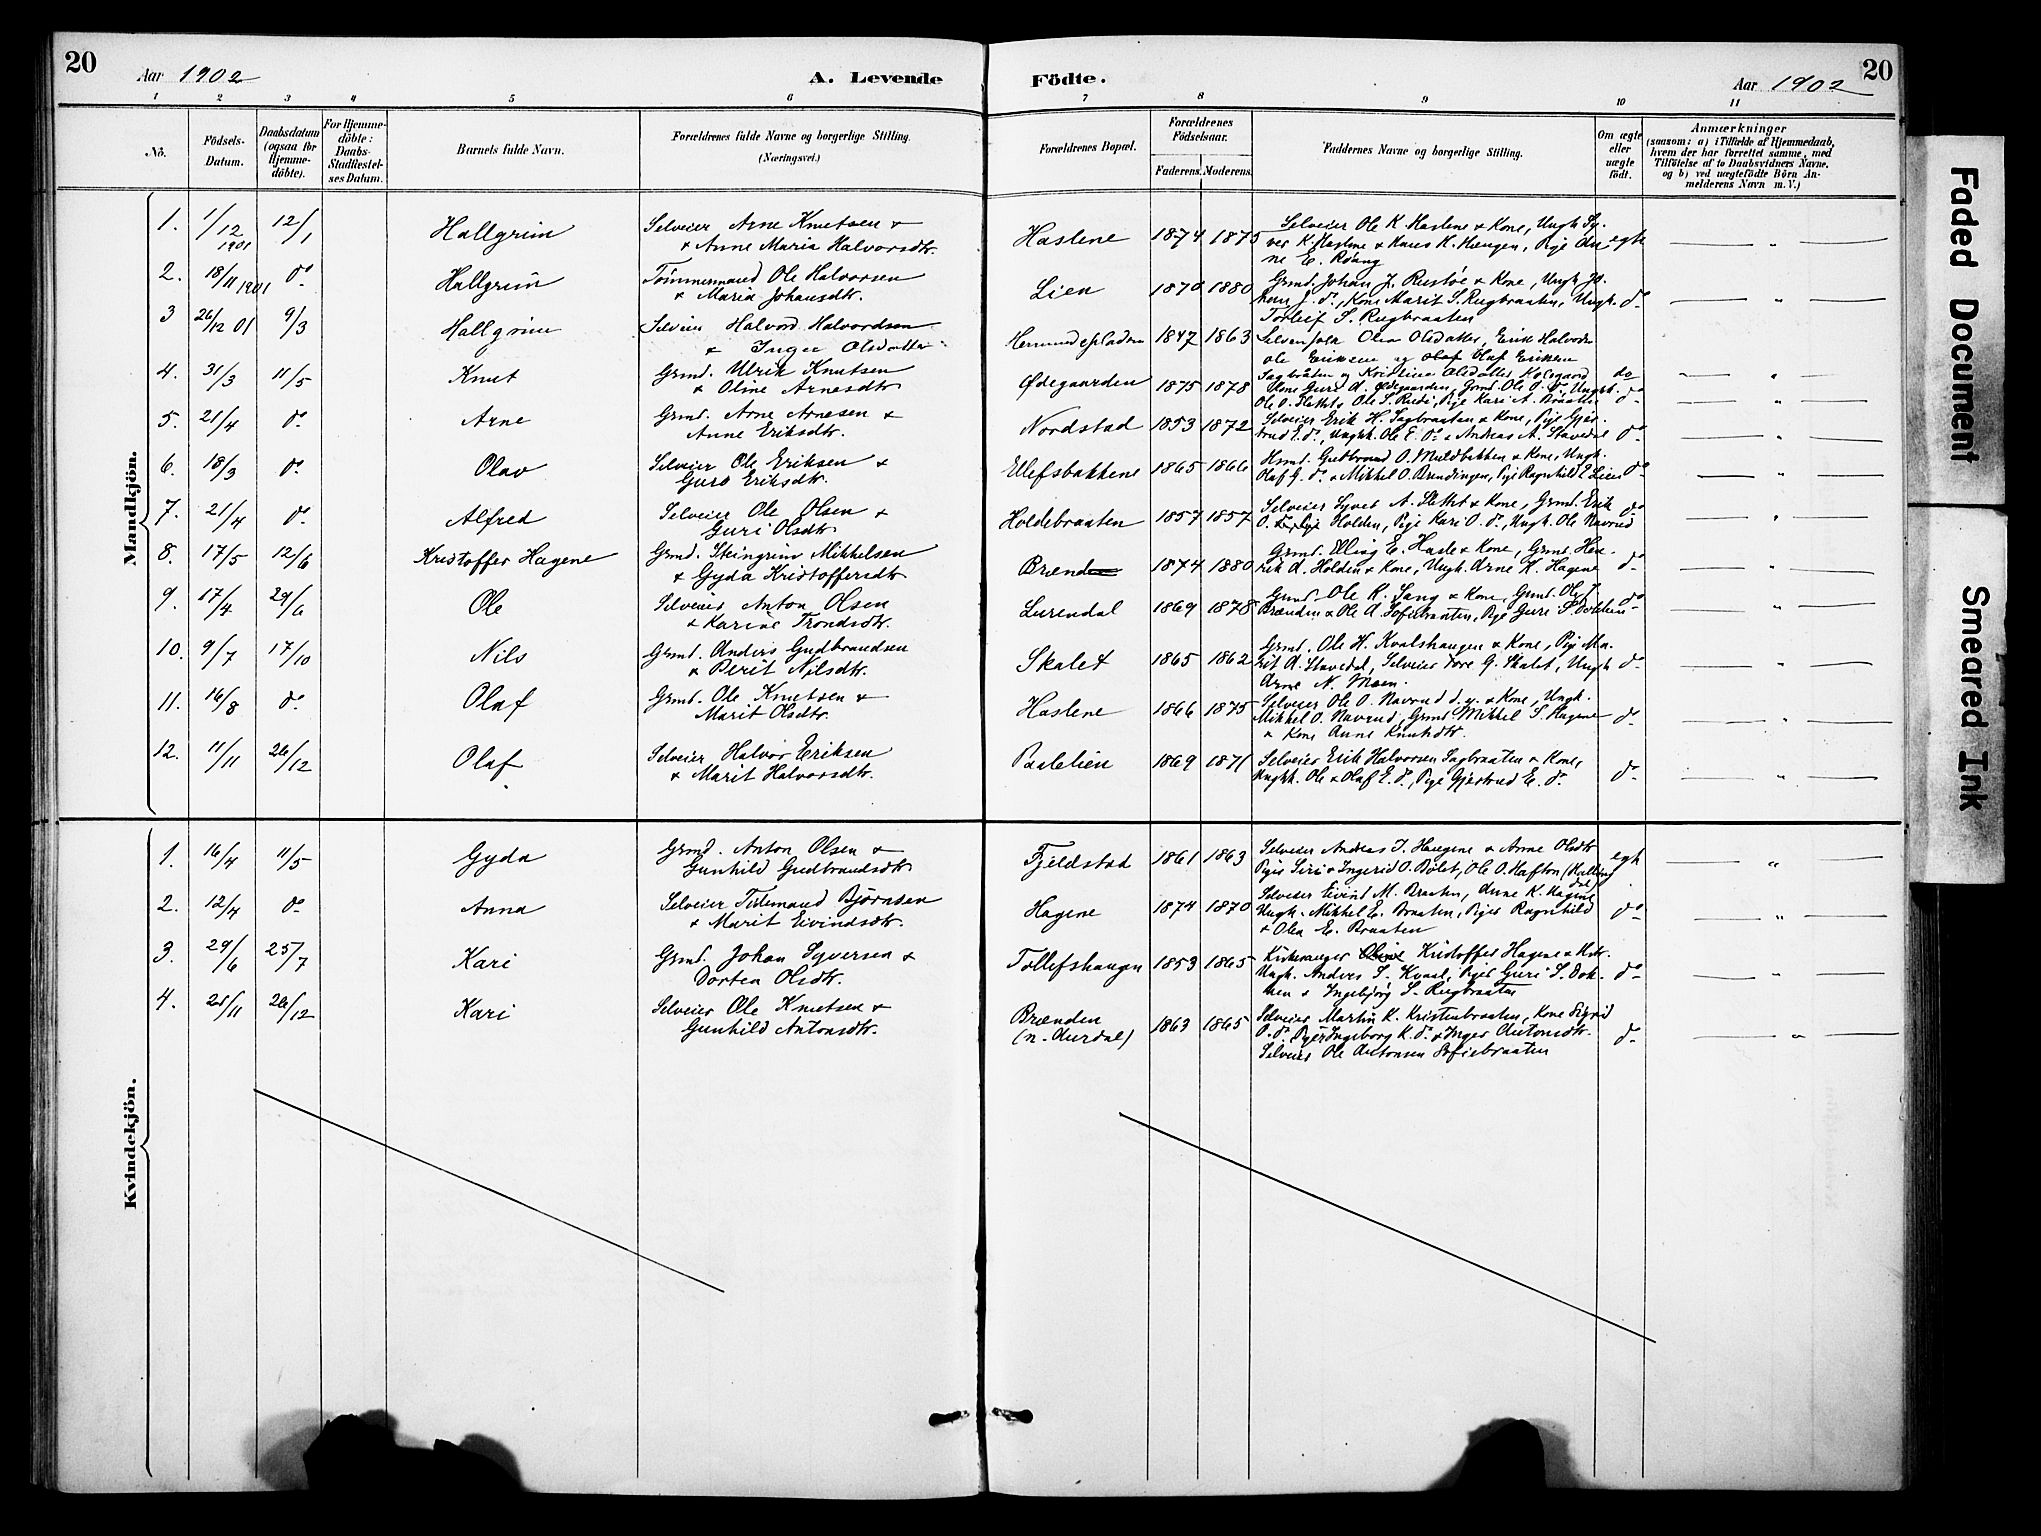 20
Aar 1902
A. Levende
Födte.
Aar 1902
20
1 2 3 4 5 6 7 8 9 10 11
Nô.
Födsels-Datum.
Daabsdatum (ogsaa for Hjemme-döbte).
For Hjemme-döbte: Daabs-Stadfestel-ses Datum.
Barnets fulde Navn.
Forældrenes fulde Navne og borgerlige Stilling. (Næringsvei.)
Forældrenes Bopæl.
Forældrenes Födselsaar.
Faderens. Moderens.
Faddernes Navne og borgerlige Stilling.
Om ægte eller uægte födt.
Anmærkninger
(saasom: a) i Tilfælde af Hjemmedaab,
hvem der har forrettet samme, med
Tilföielse af to Daabsvidners Navne,
og b) ved uægtefödte Börn An-
melderens Navn m. V.)
Mandkjön.
1. 1/12 1901 12/1 Hallgrim Selveier Arne Knutsen & Anne Maria Halvorsdtr. Haslene 1874 1875 Selveier Ole K. Haslene & Kone, Ungk. Sy-
ver K. Haslene & Knut K. Haugen, Pige An-
ne E. Röang egte
2. 18/11 1901 do Hallgrim Tömmermand Ole Halvorsen & Maria Johansdtr. Lien 1870 1880 Grmd. Johan J. Rustöe & Kone, Ungk. Jo-
han J. do, Kone Marit S. Rugbraaten, Ungk.
Torleif S. Rugbraaten do
3 26/12 01 9/3 Hallgrim Selveier Halvord Halvordsen & Inger Olsdatter 1847 1863 Olea Olsdatter, Erik Halvords
Ole Eriksen og Olaf Eriksen
Sagbråten og Kristine Olsdatter do
4. 31/3 11/5 Knut Grmd. Ulrik Knutsen & Oline Arnesdtr. Ødegaarden 1875 1878 Kone Guri A. Ødegaarden, Grmd. Ole O. do, Ungk.
Ole O. Slettet, Ole S. Rudi, Pige Kari A. do
5. 21/4 do Arne Grmd. Arne Arnesen & Anne Eriksdtr. Nordstad 1853 1872 Selveier Erik H. Sagbraaten & Kone, Pige Gjer-
trud E. do, Ungk. Ole E. do & Andreas A. Stavedal do
6. 18/3 do Olav Selveier Ole Eriksen & Guro Eriksdtr. Ellefsbakkene 1865 1866 Husmd. Gudbrand O. Muldbakken & Kone, Ungk.
Olaf G. do & Mikkel O. Brendingen, Pige Ragnhild E. Lien do
7. 21/4 do Alfred Selveier Ole Olsen & Guri Olsdtr. Holdebraaten 1857 1857 Selveier Syver A. Slettet & Kone, Grmd. Erik
O. Holden, Pige Kari O. do, Ungk. Ole Navrud do
8. 17/5 12/6 Kristoffer Hagene Grmd. Steingrim Mikkelsen & Gyda Kristoffersdtr. Brænd 1874 1880 Grmd. Elling E. Hasle & Kone, Grmd. Hen-
rik A. Holden & Kone, Ungk. Arne K. Hagene do
9. 17/4 29/6 Ole Selveier Anton Olsen & Karine Trondsdtr. Lurendal 1869 1878 Grmd. Ole K. Sang & Kone, Grmd. Ole J.
Brænden & Ole A. Sofiebraaten, Pige Guri S. Dokken do
10. 9/7 17/10 Nils Grmd. Anders Gudbrandsen & Berit Nilsdtr. Skalet 1865 1862 Grmd. Ole H. Kvalshaugen & Kone, Pige Ma-
rit A. Stavedal, Selveier Tore G. Skalet, Ungk.
Arne N. Moen. do
11. 16/8 do Olaf Grmd. Ole Knutsen & Marit Olsdtr. Haslene 1866 1875 Selveier Ole O. Navrud d. y. & Kone, Ungk.
Mikkel O. Navrud, Grmd. Mikkel S. Hagene
& Kone Anne Knutsdtr. do
12. 11/11 26/12 Olaf Selveier Halvor Eriksen & Marit Halvorsdtr. Paalelien 1869 1871 Selveier Erik Halvorsen Sagbraaten & Kone,
Ungkk. Ole & Olaf E. do, Pige Gjertrud E. do do
Kvindekjön.
1. 16/4 11/5 Gyda Grmd. Anton Olsen & Gunhild Gudbrandsdtr. Fjeldstad 1861 1863 Selveier Andreas J. Haugene & Anne Olsdtr.
Piger Siri & Ingerid O. Bölet, Ole O. Hafton (Hallingdal) egte
2. 12/4 do Anna Selveier Tidemand Björnsen & Marit Eivindsdtr. Hagene 1874 1870 Selveier Eivind M. Braaten, Anne K. Hagene
Ungk. Mikkel E. Braaten, Piger Ragnhild
& Olea E. Braaten do
3. 29/6 25/7 Kari Grmd. Johan Syversen & Dortea Olsdtr. Tollefshaugen 1853 1865 Kirkesanger Kristoffer Hagene & Hstr.
Ungk. Anders S. Kvaal, Piger Guri S. Dok-
ken & Ingebjörg S. Rugbraaten do
4. 21/11 26/12 Kari Selveier Ole Knutsen & Gunhild Antonsdtr. Brænden (n. Aurdal) 1863 1865 Selveier Martin K. Kristenbraaten, Kone Sigrid
O. do, Piger Ingeborg K. do & Inger Antonsdtr.
Selveier Ole Antonsen Sofiebraaten do
Faded Document
Smeared Ink